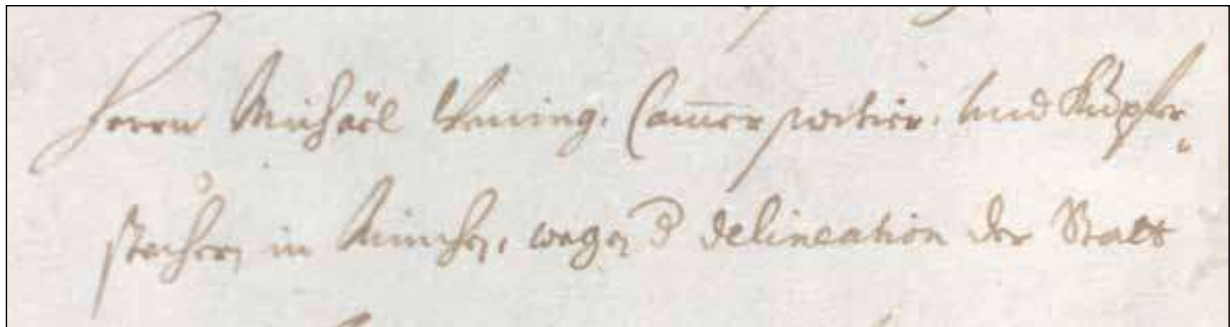 Herrn Michäel Wening, Cam̅er portier, und Kupfer=
stecher, in München, wegen d delineation der Statt